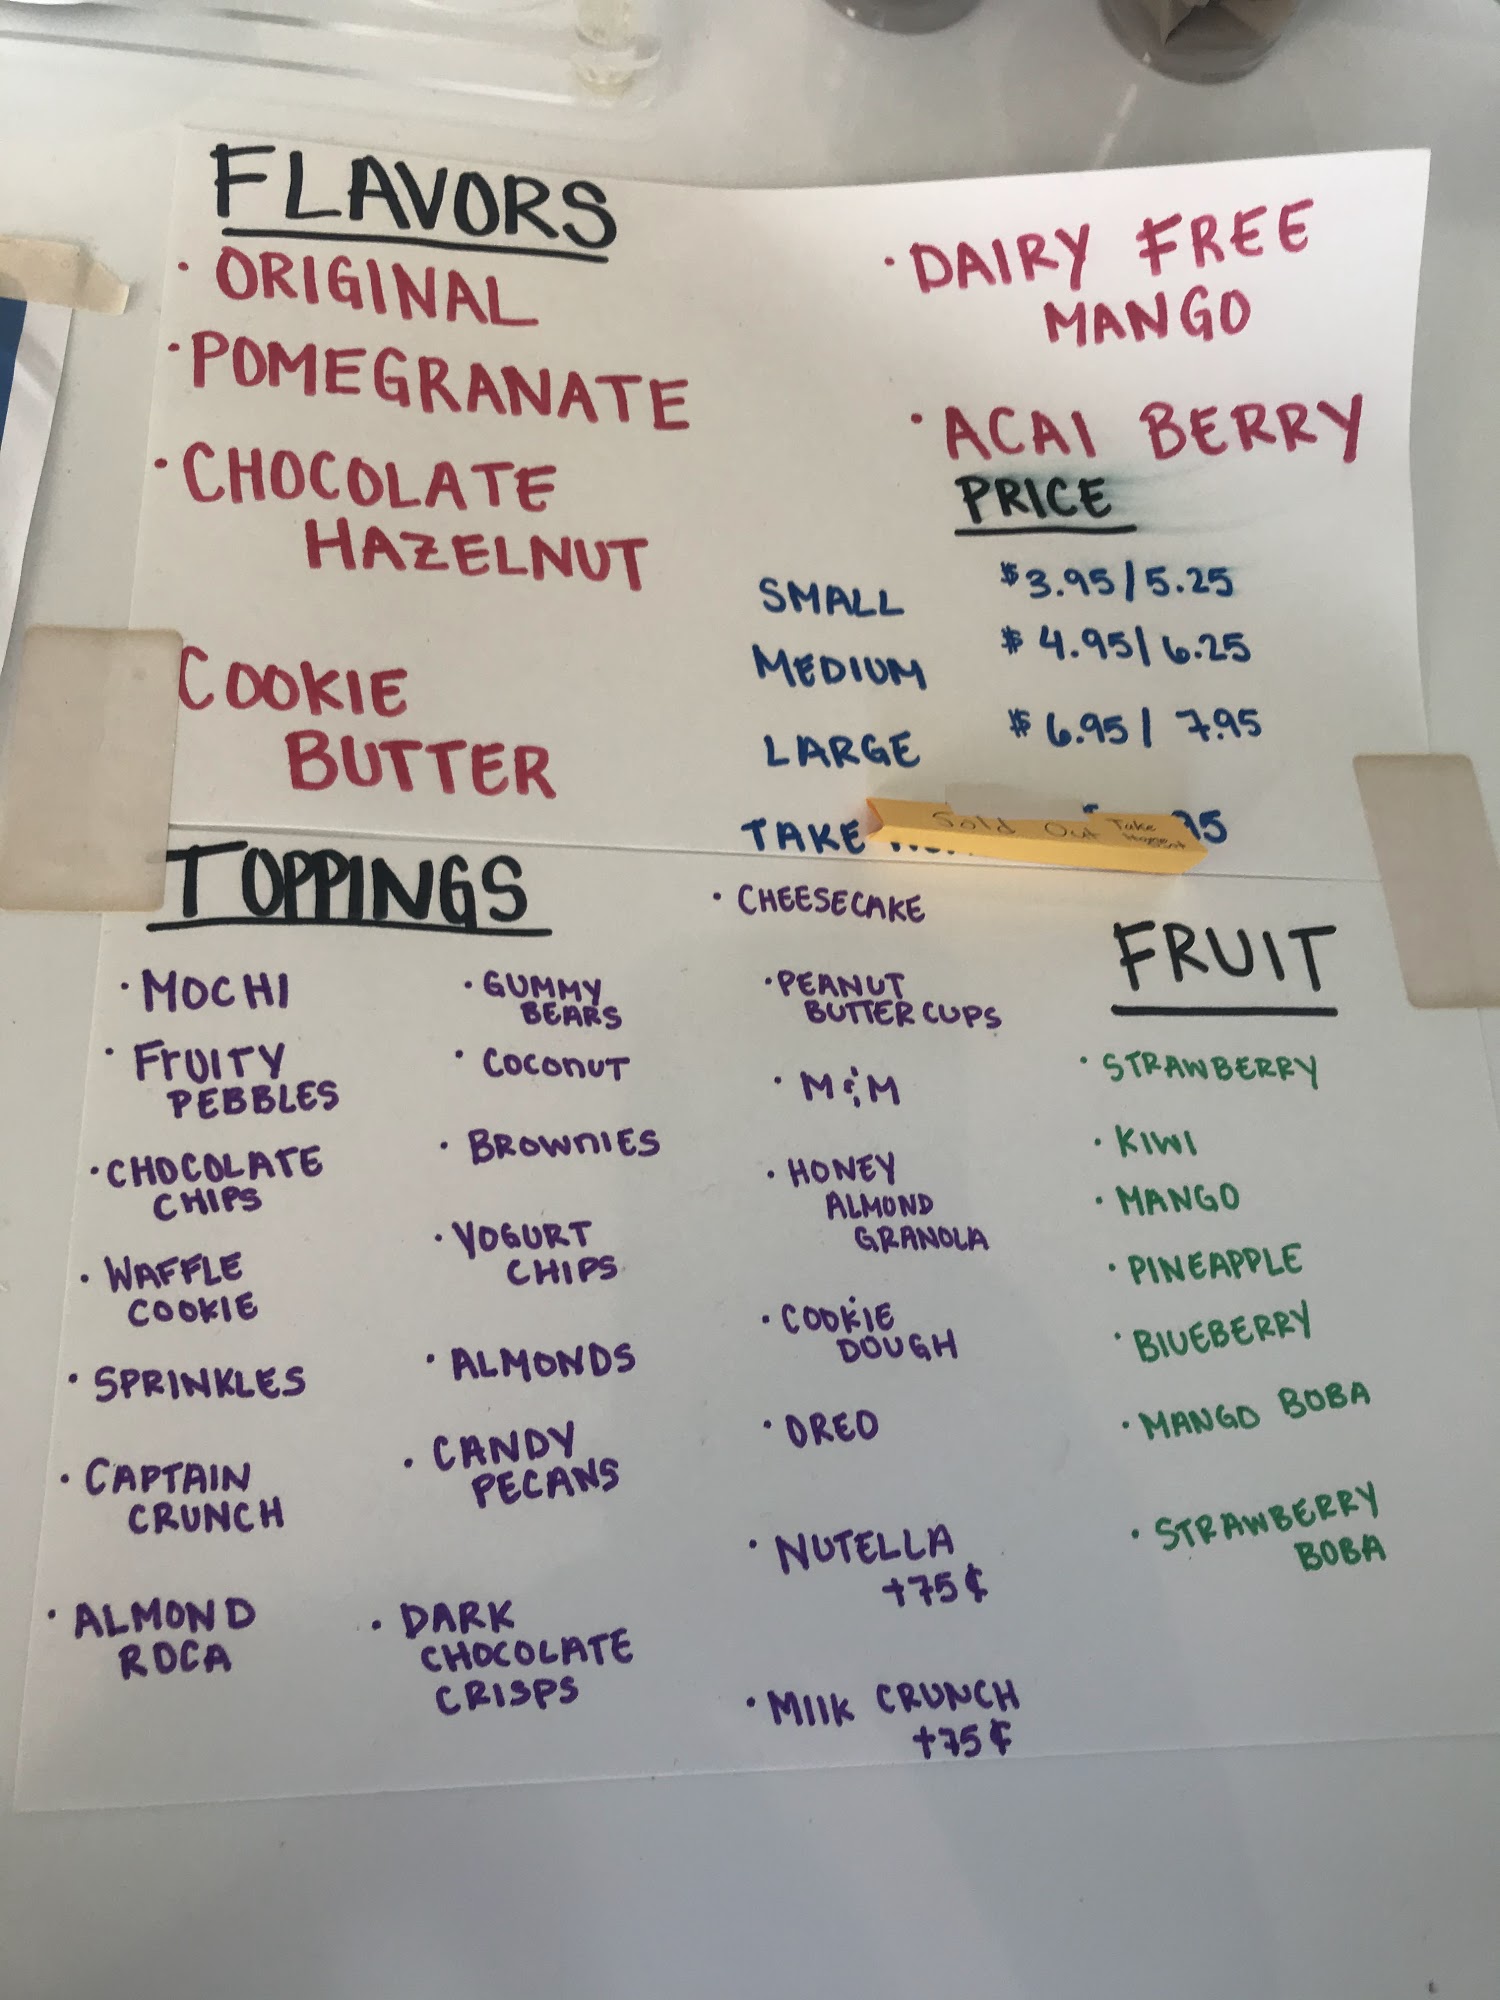 FLAVORS
· ORIGINAL
· POMEGRANATE
· CHOCOLATE
HAZELNUT
COOKIE
BUTTER
· DAIRY FREE
MANGO
· ACAI BERRY
PRICE
SMALL $3.95/5.25
MEDIUM $4.95/6.25
LARGE $6.95/7.95
TAKE
Sold Out Take
TOPPINGS
· MOCHI
· FRUITY
PEBBLES
· CHOCOLATE
CHIPS
· WAFFLE
COOKIE
· SPRINKLES
· CAPTAIN
CRUNCH
· ALMOND
ROCA
· GUMMY
BEARS
· COCONUT
· BROWNIES
· YOGURT
CHIPS
· ALMONDS
· CANDY
PECANS
· DARK
CHOCOLATE
CRISPS
· CHEESECAKE
· PEANUT
BUTTER CUPS
· M&M
· HONEY
ALMOND
GRANOLA
· COOKIE
DOUGH
· OREO
· NUTELLA
+75¢
· MIlK CRUNCH
+75¢
FRUIT
· STRAWBERRY
· KIWI
· MANGO
· PINEAPPLE
· BlUEBERRY
· MANGO BOBA
· STRAWBERRY
BOBA